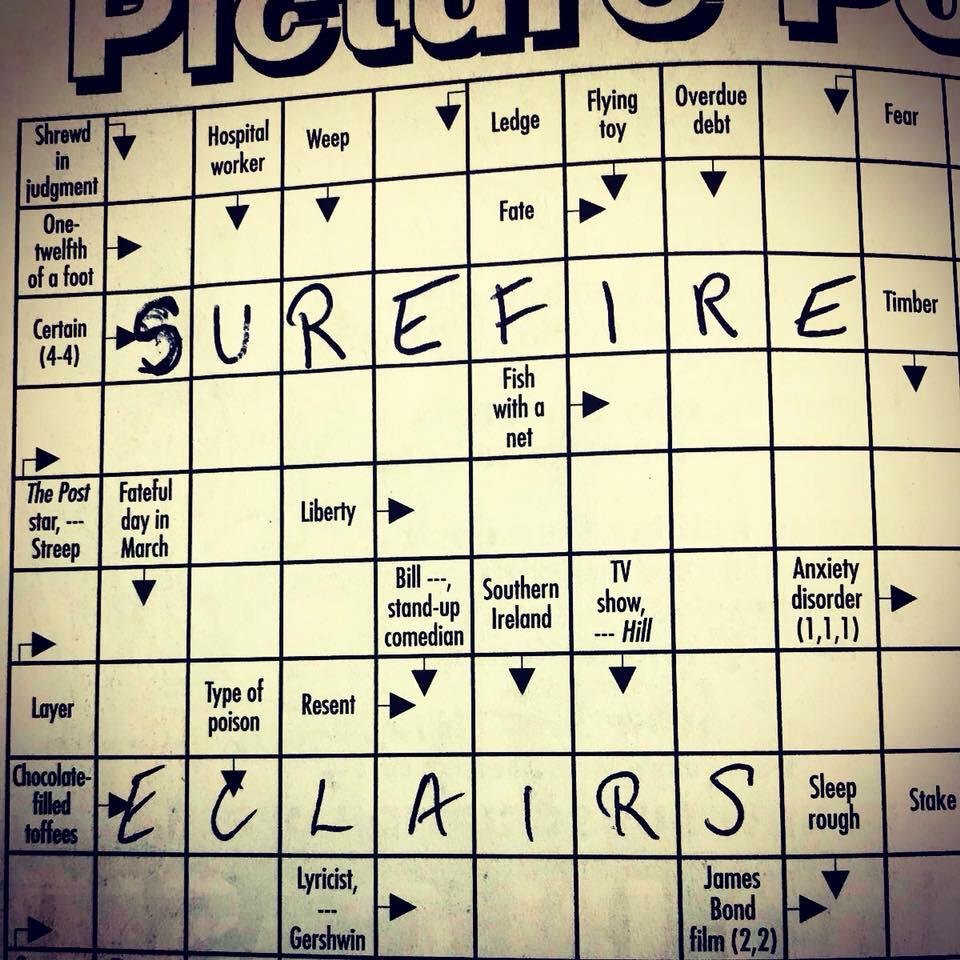 Picture Po
Shrewd in judgment
Hospital worker
Weep
Ledge
Flying toy
Overdue debt
Fear
One-twelfth of a foot
Fate
Certain (4-4)
SUREFIRE
Timber
Fish with a net
The Post star, --- Streep
Fateful day in March
Liberty
Bill ---, stand-up comedian
Southern Ireland
TV show, --- Hill
Anxiety disorder (1,1,1)
Layer
Type of poison
Resent
Chocolate-filled toffees
ECLAIRS
Sleep rough
Stake
Lyricist, --- Gershwin
James Bond film (2,2)